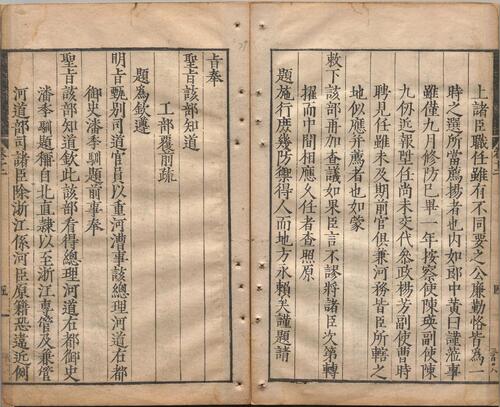 上諸臣職任雖有不同要之公廉勤恪皆為一
時之選所當薦揚者也内如郎中黄曰謹蒞事
雖僅九月修防已畢一年按察使陳瑛副使陳
九仞近報陞任尚未交代叅政楊芳副使曹時
聘見任雖未及期前官俱兼河務皆臣所轄之
地似應并薦者也如蒙
敕下該部再加查議如果臣言不謬將諸臣次第轉
擢而中間相應久任者查照原
題施行庶幾防禦得人而地方永賴矣謹題請
旨奉
聖旨該部知道
工部覆前疏
題為欽遵
明旨甄别司道官員以重河漕事該總理河道右都
御史潘季馴題前事奉
聖旨該部知道欽此該部看得總理河道右都御史
潘季馴題稱自北直隸以至浙江專管及兼管
河道部司諸臣除浙江係河臣原籍恐違近例